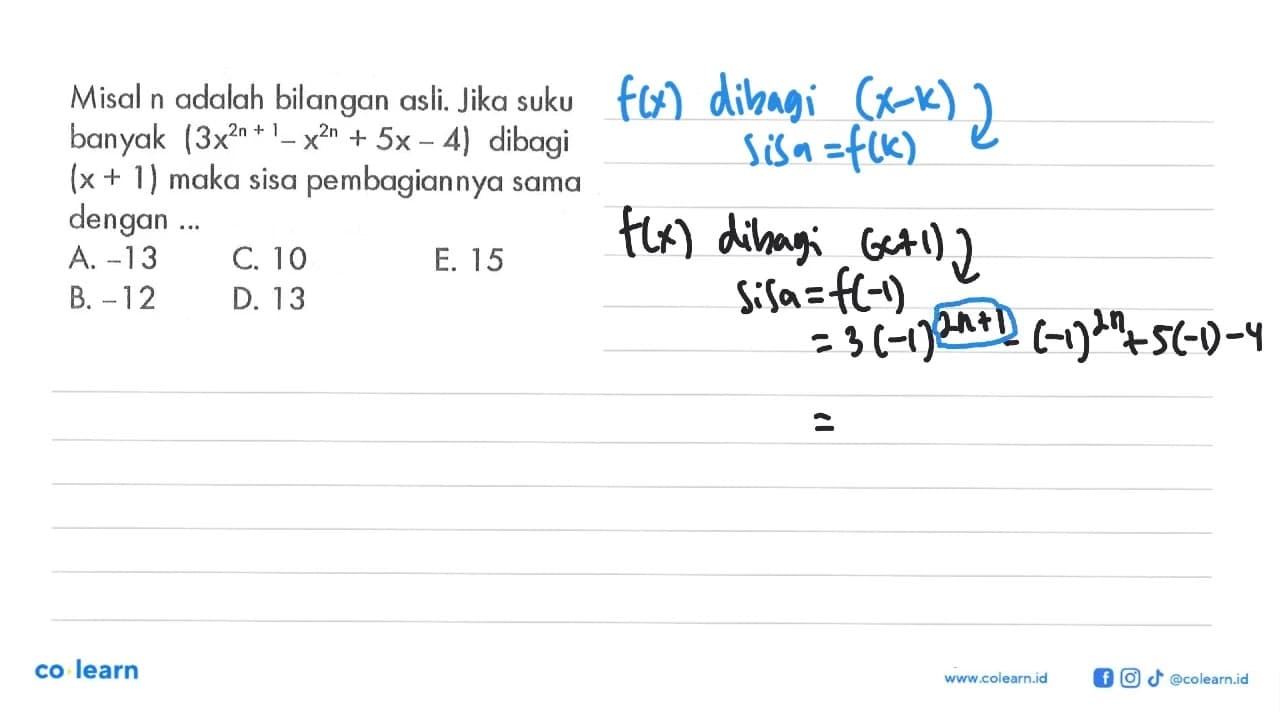 Misal n adalah bilangan asli. Jika suku
banyak (3x^{2n + 1} – x^{2n} + 5x – 4) dibagi
(x + 1) maka sisa pembagiannya sama
dengan ...
A. –13 C. 10 E. 15
B. –12 D. 13
f(x) dibagi (x-k)
sisa = f(k)
f(x) dibagi (x+1)
sisa = f(-1)
= 3(-1)^{2n+1} - (-1)^{2n} + 5(-1) - 4
=
co learn
www.colearn.id @colearn.id